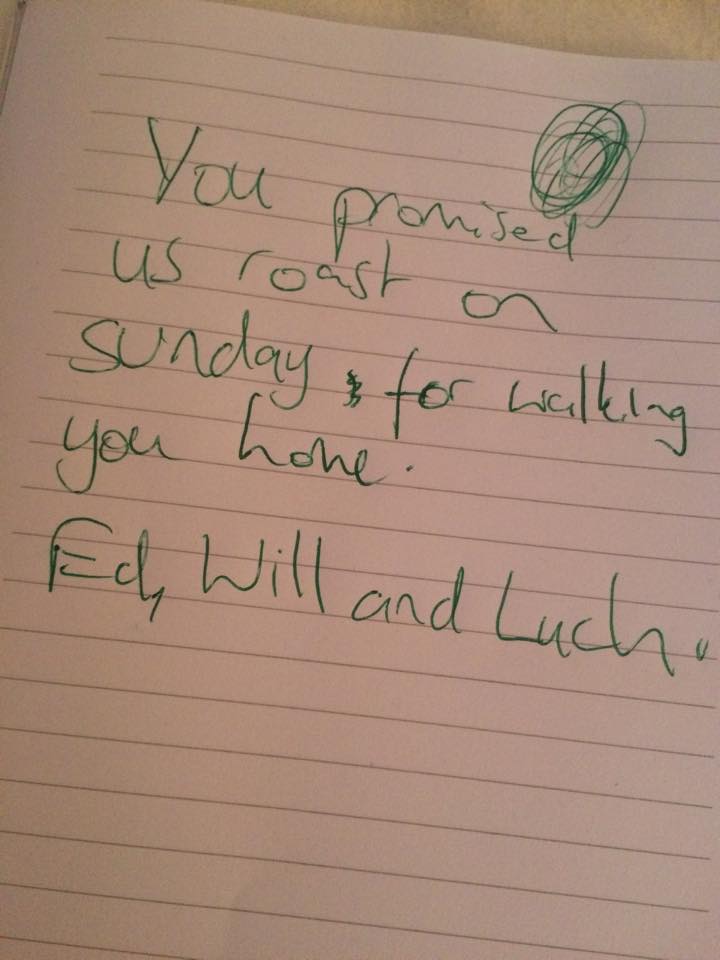 You promised
us roast on
sunday, for walking
you home.
Ed, Will and Luch.